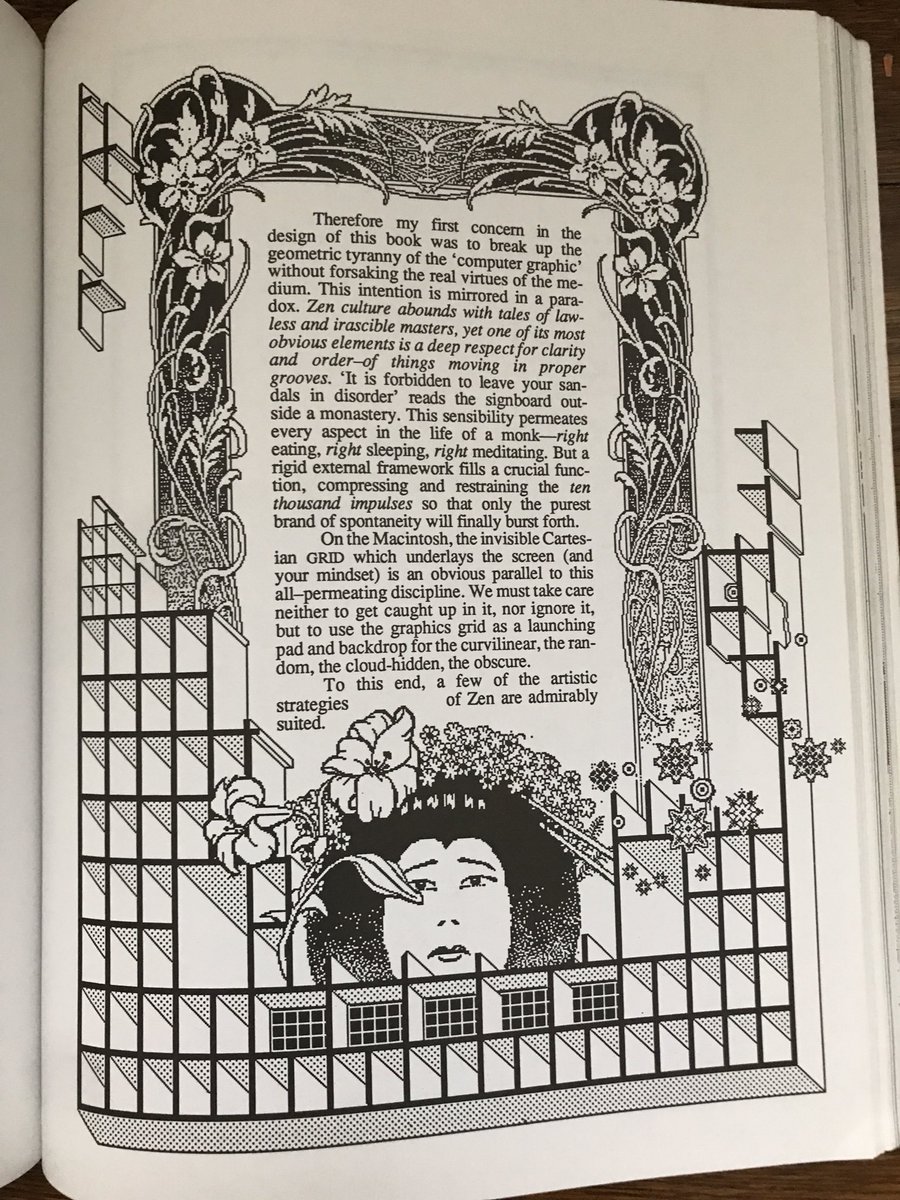 Therefore my first concern in the
design of this book was to break up the
geometric tyranny of the ‘computer graphic’
without forsaking the real virtues of the me-
dium. This intention is mirrored in a para-
dox. Zen culture abounds with tales of law-
less and irascible masters, yet one of its most
obvious elements is a deep respect for clarity
and order–of things moving in proper
grooves. ‘It is forbidden to leave your san-
dals in disorder’ reads the signboard out-
side a monastery. This sensibility permeates
every aspect in the life of a monk—right
eating, right sleeping, right meditating. But a
rigid external framework fills a crucial func-
tion, compressing and restraining the ten
thousand impulses so that only the purest
brand of spontaneity will finally burst forth.
On the Macintosh, the invisible Cartes-
ian GRID which underlays the screen (and
your mindset) is an obvious parallel to this
all–permeating discipline. We must take care
neither to get caught up in it, nor ignore it,
but to use the graphics grid as a launching
pad and backdrop for the curvilinear, the ran-
dom, the cloud-hidden, the obscure.
To this end, a few of the artistic
strategies of Zen are admirably
suited.